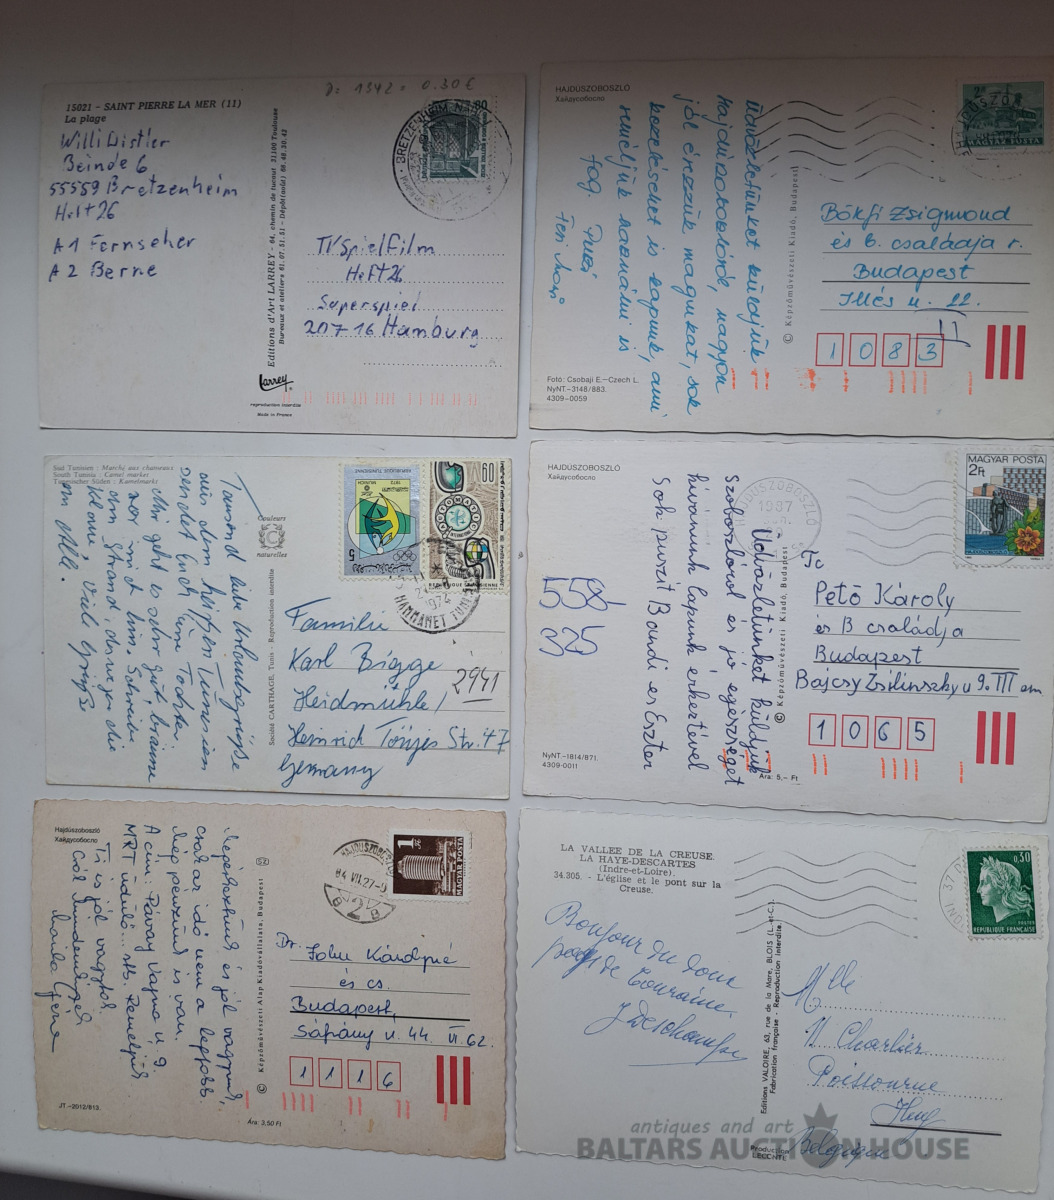 D: 1342 = 0.30 €
15021 - SAINT PIERRE LA MER (11)
La plage
Willi Distler
Beinde 6
55559 Bretzenheim
Heft 26
A1 Fernseher
A2 Berne
Editions d'Art LARREY - 64, chemin de tucaut 31100 Toulouse
Bureaux et ateliers 61.07.51.51 - Dépôt(auto) 88.48.30.42
Larrey
reproduction interdite
Made in France
BRETZENHEIM
80
TV Spielfilm
Heft 26
Superspiel
20716 Hamburg
HAJDÚSZOBOSZLÓ
Хайдусобосло
Üdvözletünket küldjük
Hajdúszoboszlóról, nagyon
jól érezzük magunkat, sok
kezeléseket is kapunk, ami
reméljük használni is
fog. Puszi
Feri
Fotó: Csobaji E.–Czech L.
NyNT.–3148/883.
4309–0059
© Képzőművészeti Kiadó, Budapest
MAGYAR POSTA
Bökfi Zsigmond
és b. családja r.
Budapest
Illés u. 22.
11
1 0 8 3
Sud Tunisien : Marché aux chameaux
South Tunisia : Camel market
Tunesischer Süden : Kamelmarkt
Tausend liebe Urlaubsgrüße
aus dem heißen Tunesien
sendet Euch Eure Tochter.
Mir geht es sehr gut, braune
vor mich hin. Schreibe
vom Strand, deswegen die
Klaue, Viel Grüße
an Alle.
Couleurs
naturelles
Société CARTHAGE, Tunis - Reproduction interdite
REPUBLIQUE TUNISIENNE
1972
MUNICH
5
60
REPUBLIQUE TUNISIENNE
1972
HAMMAMET
Familie
Karl Bigge
2941
Heidmühle/
Heinrich Tönjes Str. 47
Germany
HAJDÚSZOBOSZLÓ
Хайдусобосло
558-
325
Üdvözletünket küldjük
Szoboszlóról és jó egészséget
kívánunk lapunk érkeztével
Sok puszit Bandi és Eszter
NyNT.–1814/871.
4309-0011
© Képzőművészeti Kiadó, Budapest
Ára: 5,– Ft
HAJDÚSZOBOSZLÓ
1987
MAGYAR POSTA
2Ft
HAJDÚSZOBOSZLÓ
Pető Károly
és B családja
Budapest
Bajcsy Zsilinszky u 9. III em
1 0 6 5
Hajdúszoboszló
Хайдусобосло
Megérkeztünk és jól vagyunk,
csak az idő nem a legjobb
A cím: Pávay Vajna u 9
MRT üdülő... stb. Reméljük
Ti is jól vagytok.
JT.–2012/813.
SZ
© Képzőművészeti Alap Kiadóvállalata, Budapest
Ára: 3,50 Ft
HAJDÚSZOBOSZLÓ
84 VII.27-9
2
1 Ft
MAGYAR POSTA
Dr.
és cs.
Budapest,
Sáfrány u. 44 VI. 62.
1 1 1 6
LA VALLEE DE LA CREUSE
LA HAYE-DESCARTES
(Indre-et-Loire).
34.305. - L'église et le pont sur la
Creuse.
Bonjour du doux
pays de Touraine.
Editions VALOIRE, 63, rue de la Mare, BLOIS (L.-et-C.).
Fabrication française - Reproduction interdite.
Production
LECONTE
0,30
POSTES
REPUBLIQUE FRANÇAISE
Mlle
N. Charlier
Huy
Belgique
antiques and art
BALTARS AUCTION HOUSE